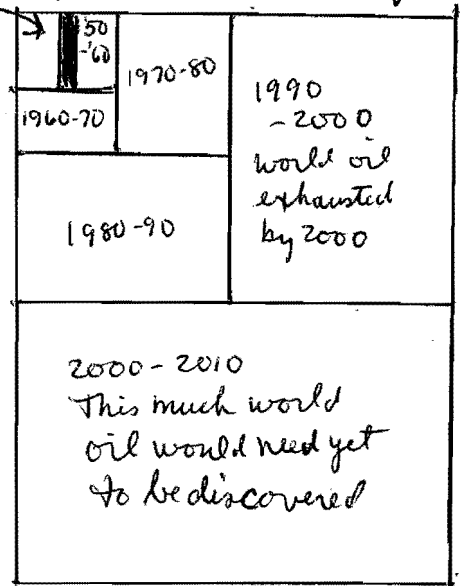 '50
-'60
1970-80
1960-70
1980-90
1990
- 2000
world oil
exhausted
by 2000
2000 - 2010
This much world
oil would need yet
to be discovered